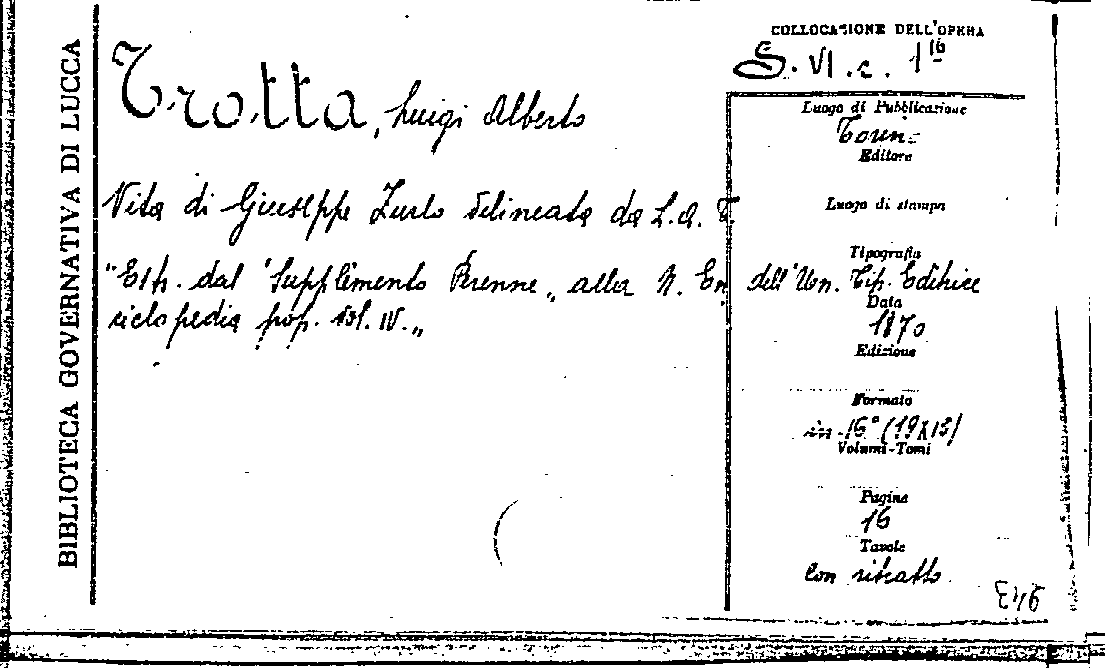 BIBLIOTECA GOVERNATIVA DI LUCCA
COLLOCAZIONE DELL'OPERA
S. VI. c. 1 16
Trotta, Luigi Alberto
Vita di Giuseppe Zurlo delineata da L. A. T.
"Estr. dal "Supplimento Perenne" alla N. En
ciclopedia pop. Vol. IV."
Luogo di Pubblicazione
Torino
Editore
Luogo di stampa
Tipografia
dell'Un. Tip. Editrice
Data
1870
Edizione
Formato
in-16° (19X13)
Volumi-Tomi
Pagine
16
Tavole
Con ritratto